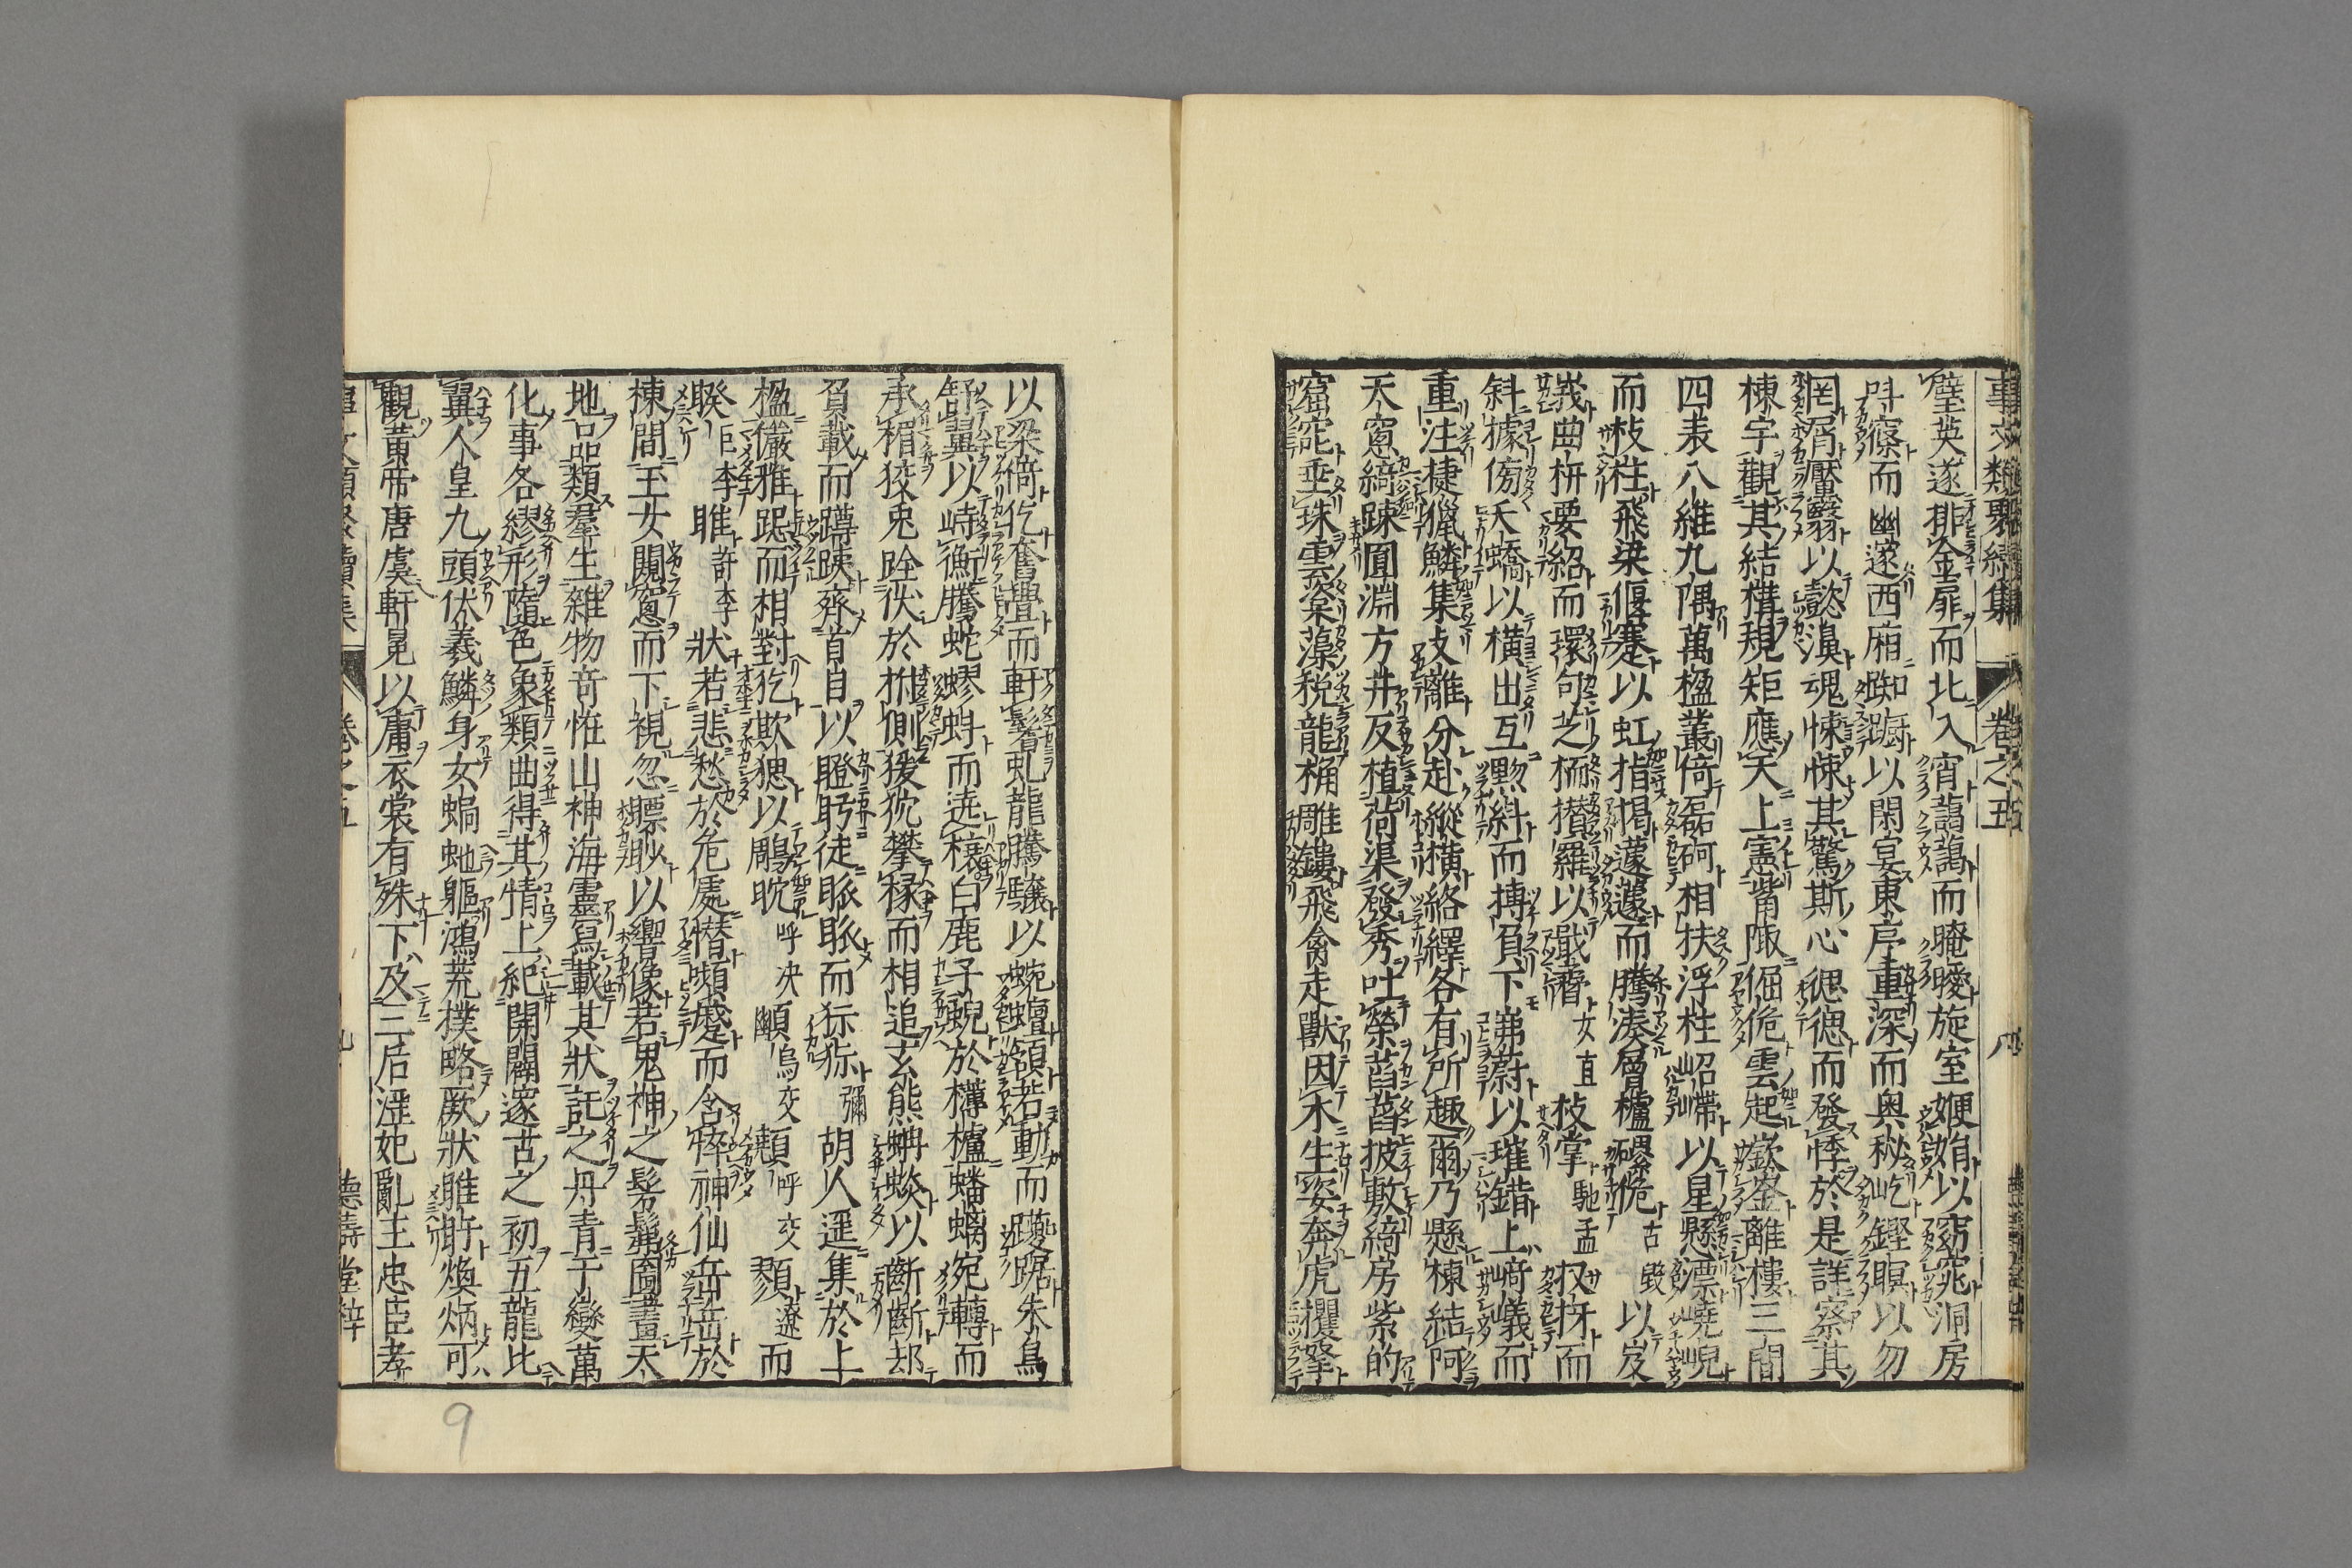 事文類聚續集 卷之五 八
壁英遂排金扉而北入宵藹藹而晻曖旋室㛹娟以窈窕洞房
叫窱而幽邃西廂踟蹰以閑宴東序重深而奥秘屹鏗瞑以勿
罔屑黶翳以懿濞魂悚悚其驚斯心𤟧𤟧而發悸於是詳察其
棟宇觀其結構規矩應天上憲觜陬倔佹雲起嶔崟離樓三間
四表八維九隅萬楹叢倚磊砢相扶浮柱岹嵽以星懸漂嶢峴
而枝柱飛梁偃蹇以虹指揭蘧蘧而騰湊層櫨磥佹古毀以岌
峩曲枅要紹而環句芝栭攅羅以戢孴女直枝掌馳孟杈枒而
斜據傍夭蟜以橫出互黝糾而搏負下岪蔚以璀錯上﨑嶬而
重注捷獵鱗集支離分赴縱橫絡繹各有所趣爾乃懸棟結阿
天窻綺踈圓淵方井反植荷渠發秀吐榮菡萏披敷綺房紫的
窟窋垂珠雲楶藻梲龍桷雕鏤飛禽走獸因木生姿奔虎攫挐
以梁倚仡奮舋而軒鬐虬龍騰驤以蜿蟺頷若動而躨跜朱鳥
舒翼以峙衡騰蛇蟉蚪而遶榱白鹿孑蜺於欂櫨蟠螭宛轉而
承楣狡兎跧伏於柎側猨狖攀椽而相追玄熊蚺蛟以齗齗却
負載而蹲跠齊首目以瞪眄徒脈脈而狋狋彌胡人遥集於上
楹儼雅跽而相對仡欺𤟧以鵰呼決烏交呼交遼而
睽巨季睢許季狀若悲愁於危處憯嚬蹙而含悴神仙岳岳於
棟間玉女闚窻而下視忽瞟眇以響像若鬼神之髣髴圖畫天
地品類羣生雜物奇怪山神海靈寫載其狀託之丹青千變萬
化事各繆形隨色象類曲得其情上紀開闢遂古之初五龍比
翼人皇九頭伏羲鱗身女蝸虵軀鴻荒樸略厥狀睢盱煥炳可
觀黄帝唐虞軒冕以庸衣裳有殊下及三后淫妃亂主忠臣孝
卷之五 九 德壽堂梓